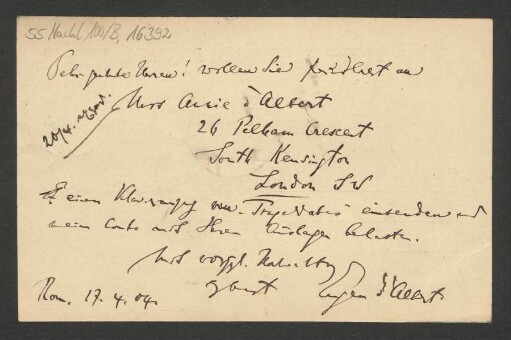 55 Nachl 100/B, 16392
Sehr geehrte Herren! wollen Sie gefälligst an
Miss Annie d'Albert
20/4. 
26 Pelham Crescent
South Kensington
London SW
einen Klavierauszug von einsenden und
mein Conto mit Ihren Auslagen belasten.
Mit vorzgl. Hochachtg
Rom. 17.4.04. Eugen d'Albert